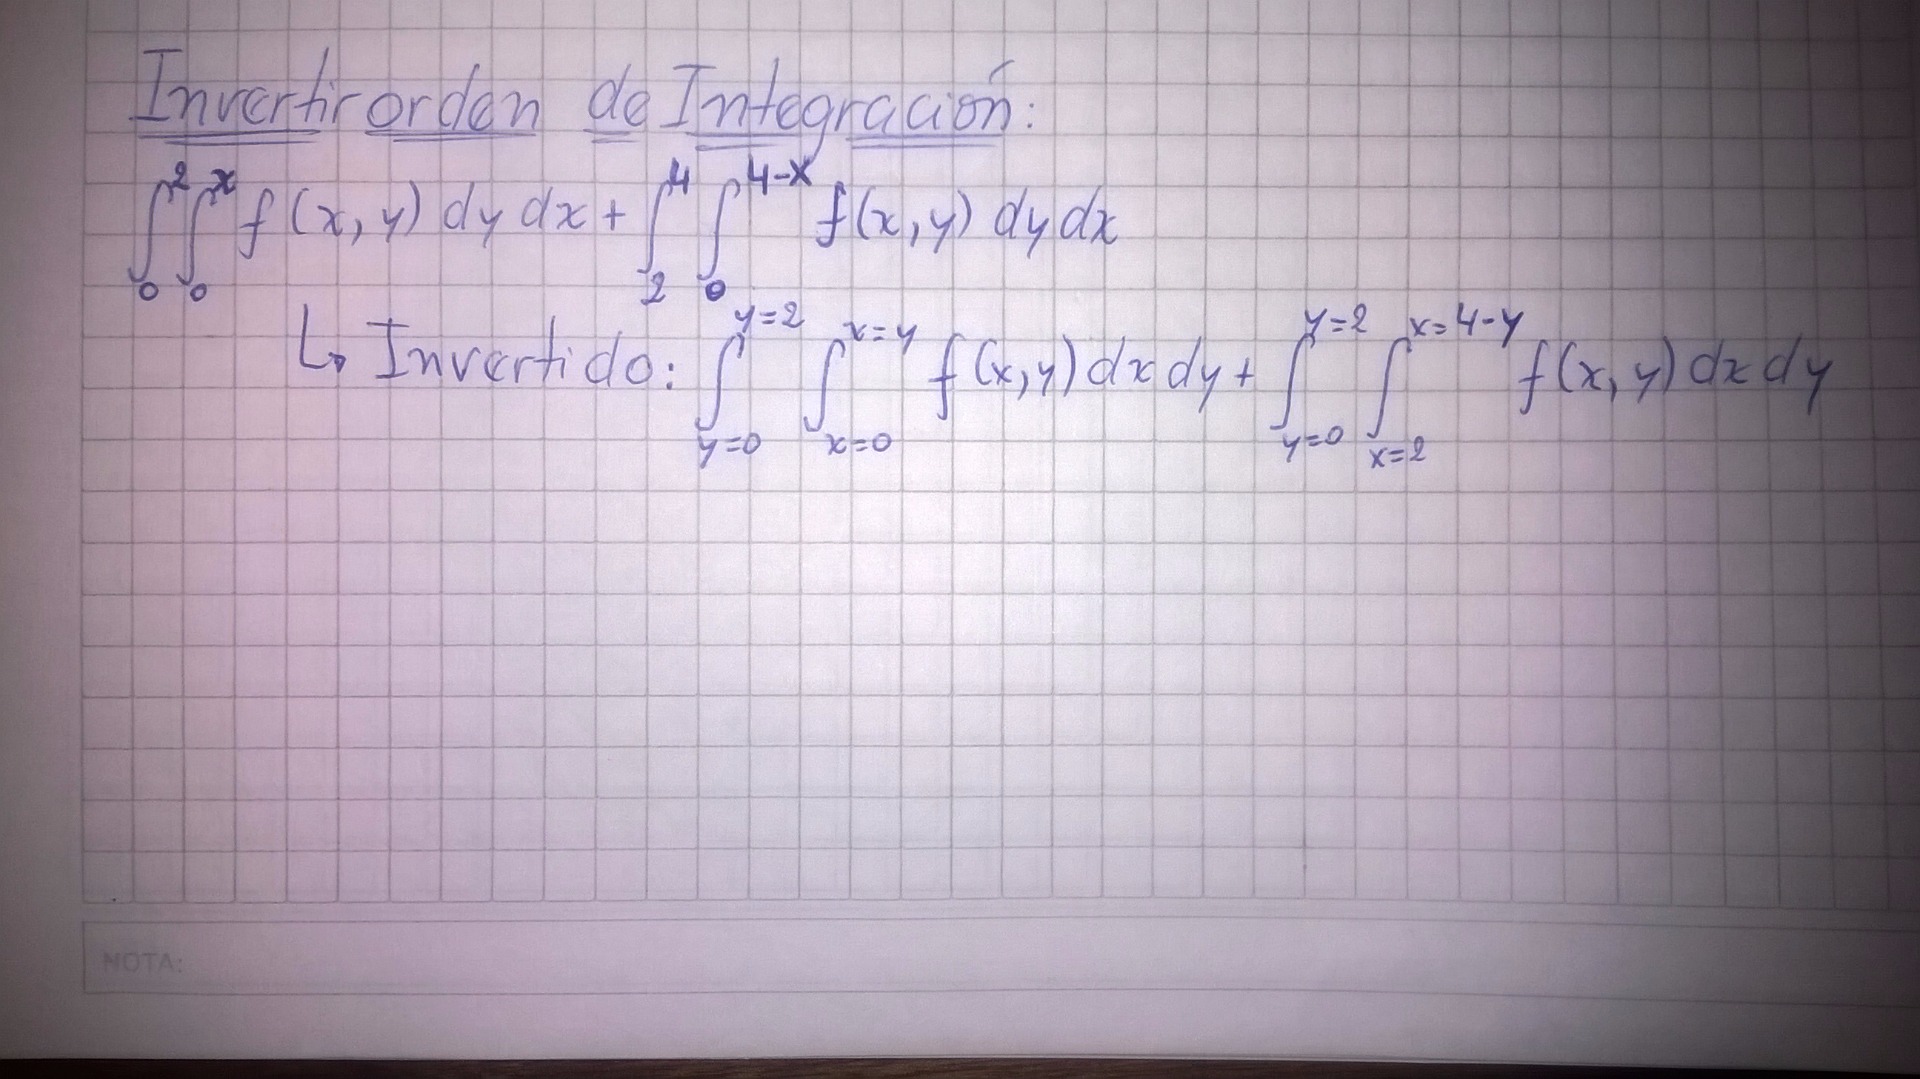 Invertir orden de Integración:
∫₀² ∫₀ˣ f(x,y) dy dx + ∫₂⁴ ∫₀⁴⁻ˣ f(x,y) dy dx
↳ Invertido: ∫_{y=0}^{y=2} ∫_{x=0}^{x=y} f(x,y) dx dy + ∫_{y=0}^{y=2} ∫_{x=2}^{x=4-y} f(x,y) dx dy
NOTA: